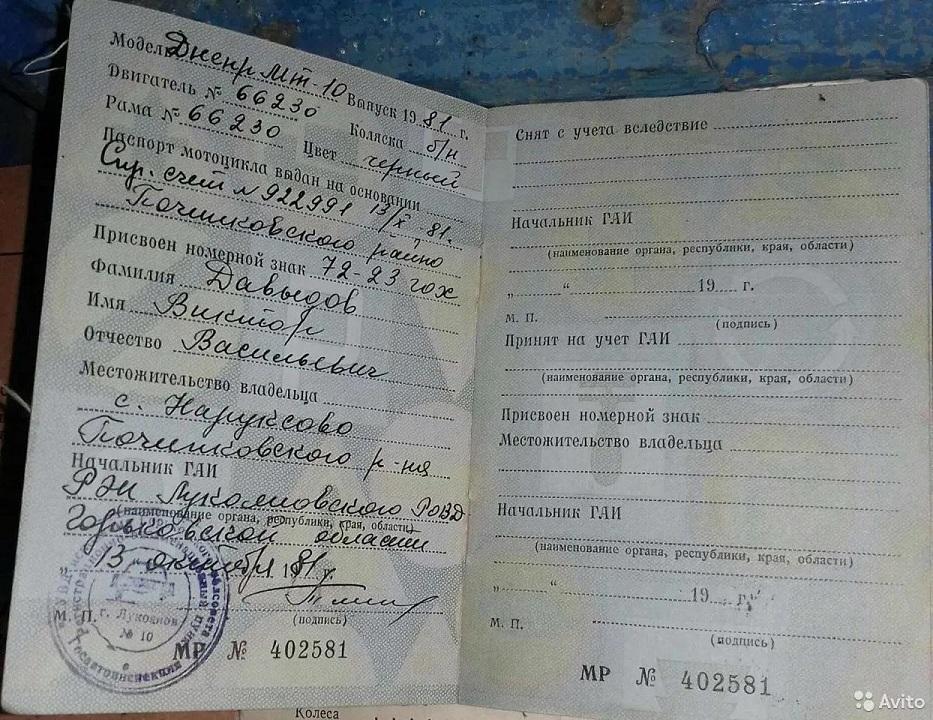 Модель Днепр МТ-10 Выпуск 1981 г.
Двигатель № 66230
Рама № 66230 Коляска б/н
Цвет черный
Паспорт мотоцикла выдан на основании
Спр. счет №922991 13/X 81.
Починковского райпо
Присвоен номерной знак 72-23 гох
Фамилия Давыдов
Имя Виктор
Отчество Васильевич
Местожительство владельца
с. Наруксово
Починковского р-ня
Начальник ГАИ
РЭП Лукояновского РОВД
(наименование органа, республики, края, области)
Горьковской области
„ 13 октября 1981 г.
(подпись)
М. П.
г. Лукоянов
№ 10
Госавтоинспекции
МР № 402581
Снят с учета вследствие
Начальник ГАИ
(наименование органа, республики, края, области)
„ “ 19 г.
М. П.
(подпись)
Принят на учет ГАИ
(наименование органа, республики, края, области)
Присвоен номерной знак
Местожительство владельца
Начальник ГАИ
(наименование органа, республики, края, области)
„ “ 19 г.
М. П.
(подпись)
МР № 402581
Колеса
Avito